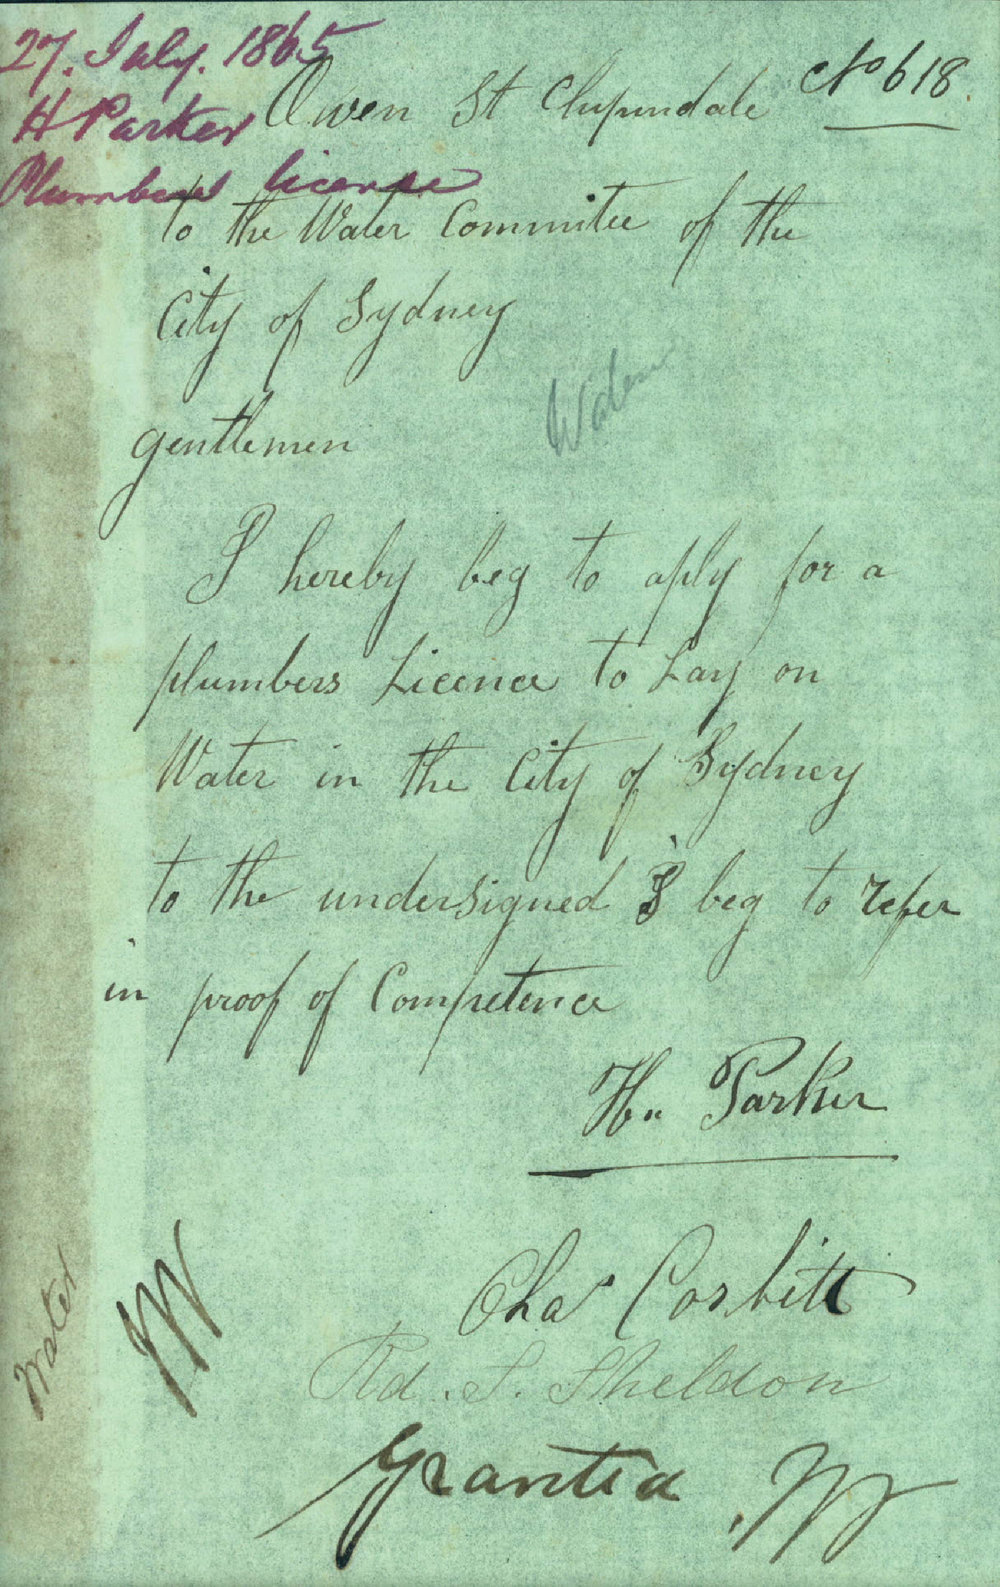 27. July. 1865
H Parker
Plumbers license
No 618
Owen St Chipindale
to the Water Committee of the
City of Sydney
Water
gentlemen
I hereby beg to aply for a
plumbers Licence to Lay on
Water in the City of Sydney
to the undersigned I beg to refer
in proof of Competence
Hn Parker
Chas Corbitt
Rd. S. Sheldon
Granted
W
Water
W